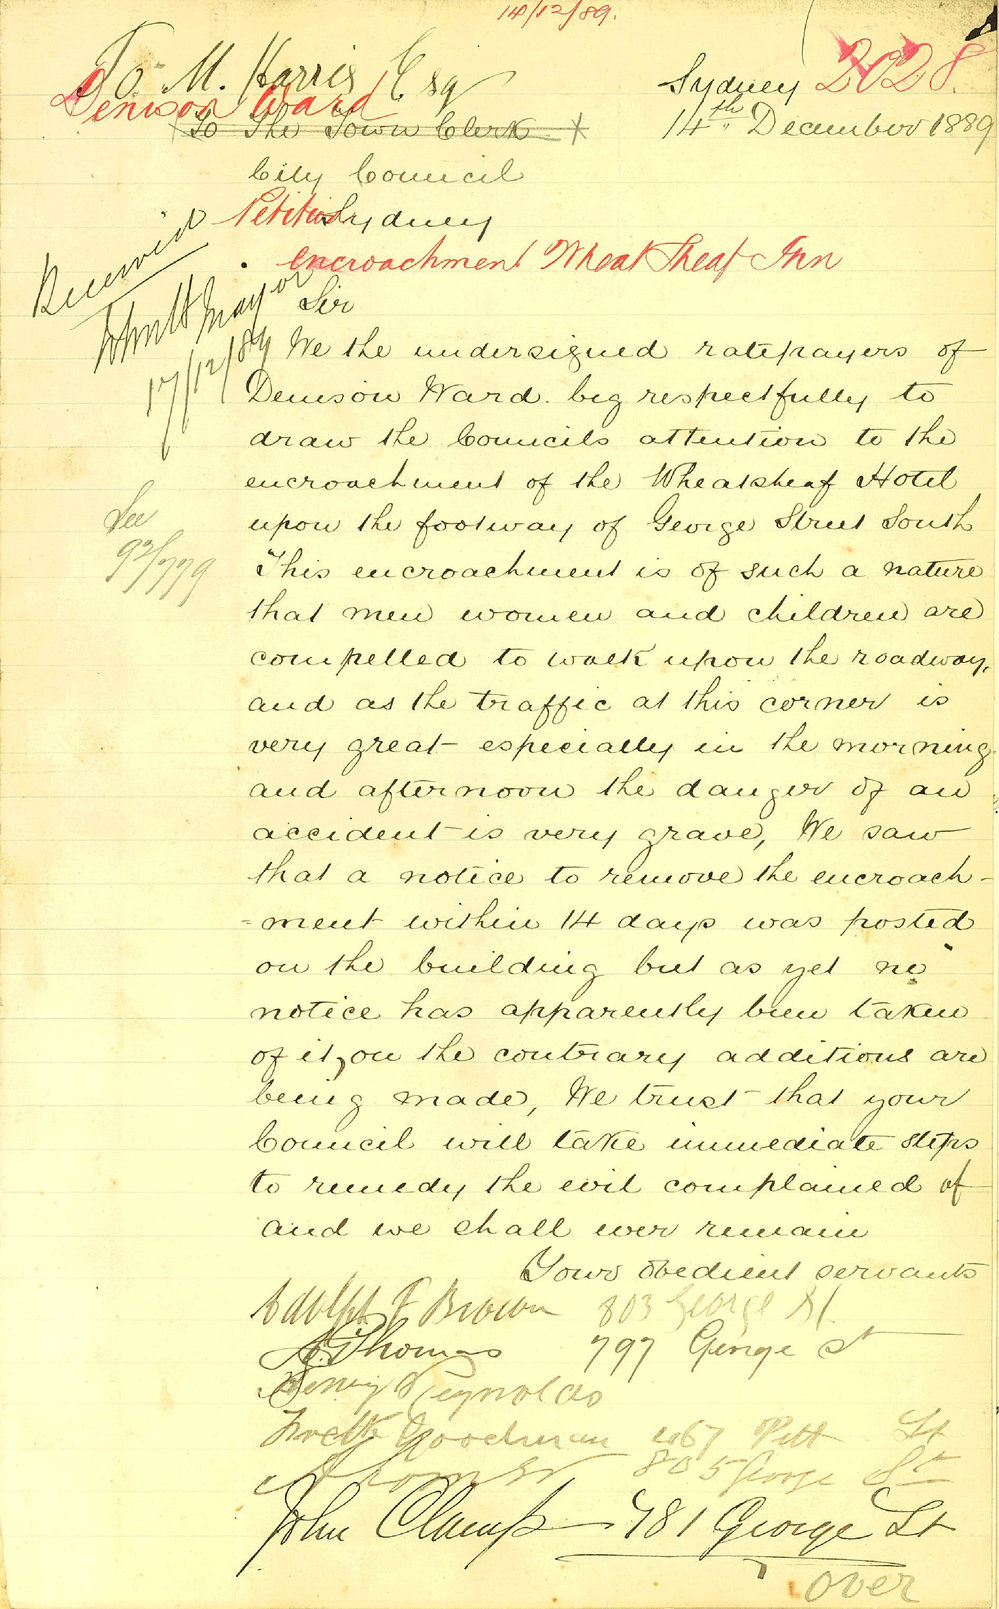 14/12/89.
To M. Harris Esq
Sydney 2028.
Denison Ward
To The Town Clerk
14th December 1889
City Council
Petition Sydney
encroachment Wheat Sheaf Inn
Received
John H Mayor
17/12/89
Sir
We the undersigned ratepayers of
Denison Ward. beg respectfully to
draw the Councils attention to the
encroachment of the Wheatsheaf Hotel
See
92/779
upon the footway of George Street South
This encroachment is of such a nature
that men women and children are
compelled to walk upon the roadway,
and as the traffic at this corner is
very great especially in the morning
and afternoon the danger of an
accident is very grave, We saw
that a notice to remove the encroach-
-ment within 14 days was posted
on the building but as yet no
notice has apparently been taken
of it, on the contrary additions are
being made, We trust that your
Council will take immediate steps
to remedy the evil complained of
and we shall ever remain
Your obedient servants
Adolph F Brown 803 George St.
Thomas 797 George St
Henry Reynolds
Goodman Pitt St
805 George St
John Clamp 781 George St
over